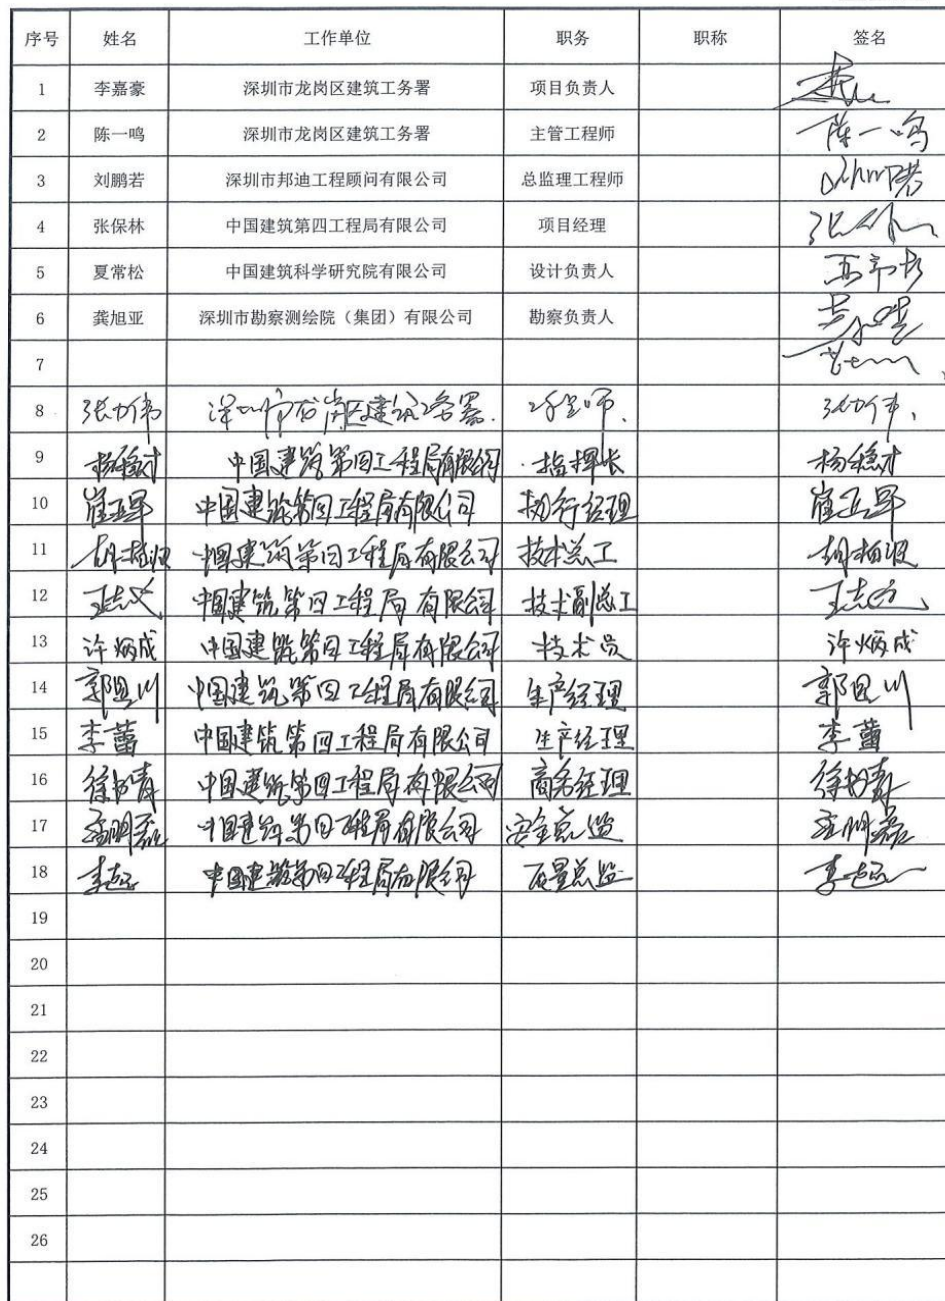 序号 姓名 工作单位 职务 职称 签名
1 李嘉豪 深圳市龙岗区建筑工务署 项目负责人
2 陈一鸣 深圳市龙岗区建筑工务署 主管工程师 陈一鸣
3 刘鹏若 深圳市邦迪工程顾问有限公司 总监理工程师
4 张保林 中国建筑第四工程局有限公司 项目经理
5 夏常松 中国建筑科学研究院有限公司 设计负责人
6 龚旭亚 深圳市勘察测绘院（集团）有限公司 勘察负责人
7
8 张力伟 深圳市龙岗区建筑工务署. 工程师. 张力伟.
9 杨稳才 中国建筑第四工程局有限公司 指挥长 杨稳才
10 崔亚军 中国建筑第四工程局有限公司 执行经理 崔亚军
11 中国建筑第四工程局有限公司 技术总工
12 中国建筑第四工程局有限公司 技术副总工
13 许炳成 中国建筑第四工程局有限公司 技术员 许炳成
14 郭恩川 中国建筑第四工程局有限公司 生产经理 郭恩川
15 李蕾 中国建筑第四工程局有限公司 生产经理 李蕾
16 中国建筑第四工程局有限公司 商务经理
17 中国建筑第四工程局有限公司 安全总监
18 中国建筑第四工程局有限公司 质量总监
19
20
21
22
23
24
25
26